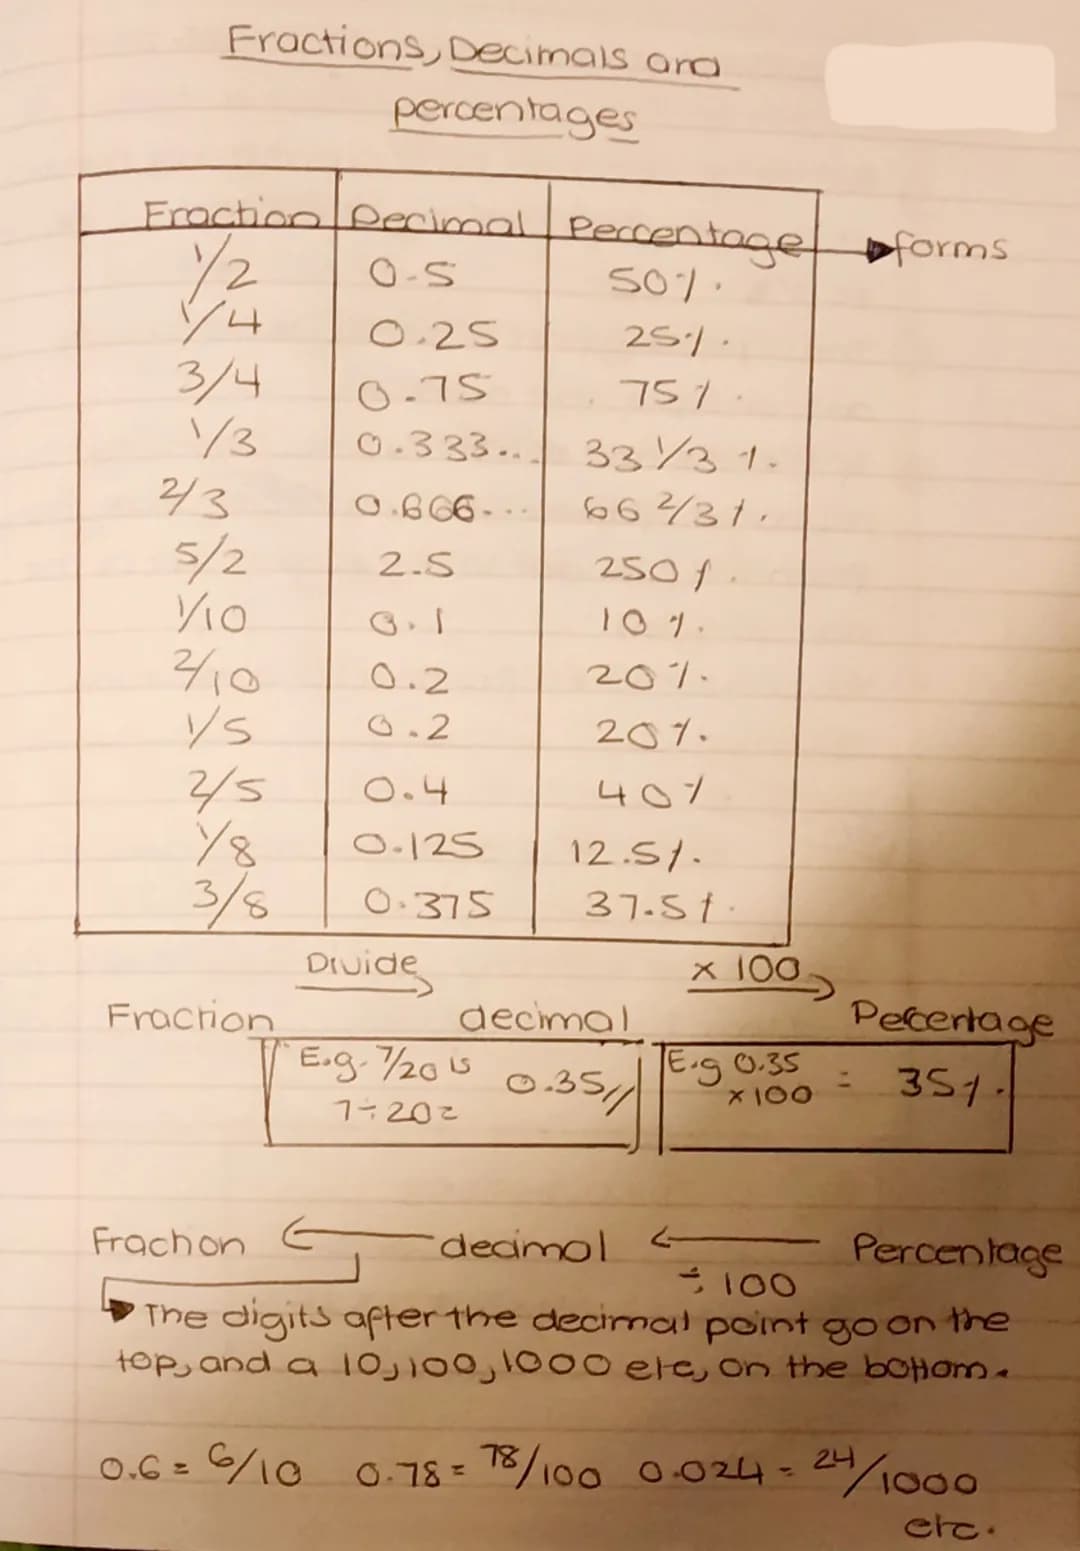 Fractions, Decimals and
percentages
Fraction Decimal Percentage → forms
1/2 0.5 50%
1/4 0.25 25%
3/4 0.75 75%
1/3 0.333... 33 1/3 %
2/3 0.666... 66 2/3 %
5/2 2.5 250%
1/10 0.1 10%
2/10 0.2 20%
1/5 0.2 20%
2/5 0.4 40%
1/8 0.125 12.5%
3/8 0.375 37.5%
Divide × 100
Fraction decimal Percentage
E.g. 7/20 is 0.35 E.g 0.35 = 35%
7÷20= ×100
Fraction ← decimal ← Percentage
÷ 100
The digits after the decimal point go on the
top, and a 10, 100, 1000 etc, on the bottom.
0.6 = 6/10 0.78 = 78/100 0.024 = 24/1000
etc.